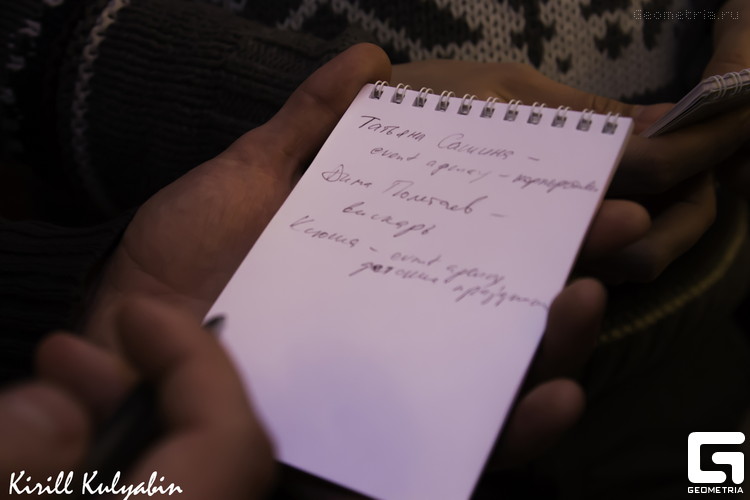 Geometria.ru
Татьяна Сашина -
event agency - корпоративы
Дима Полетаев -
вискарь
Ксюша - event agency
детские праздники
Kirill Kulyabin
G
GEOMETRIA